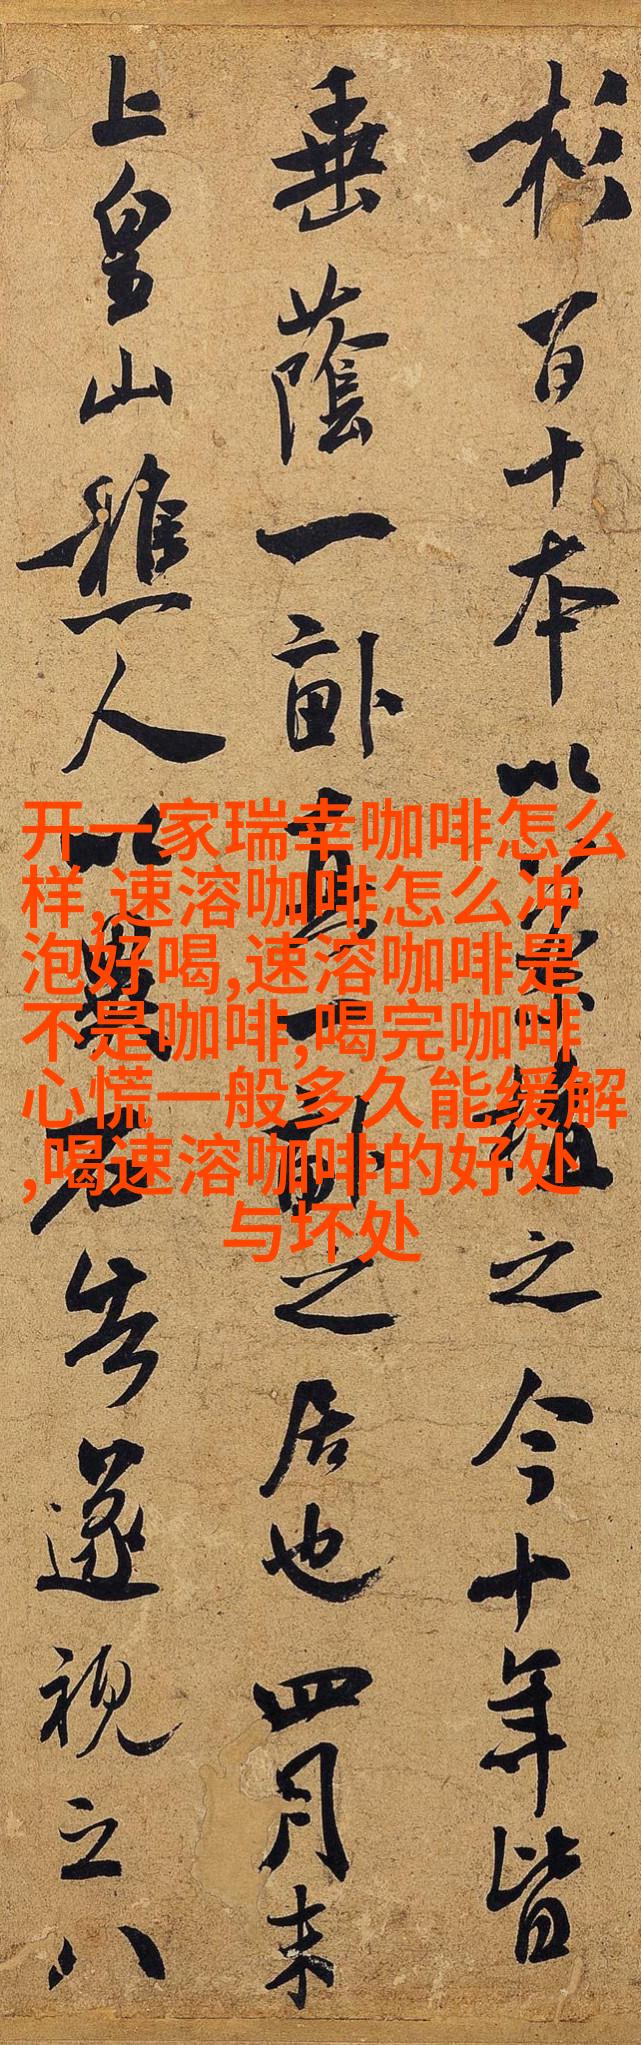 杉百十本以植之今十年皆
垂蔭一畝真一畝之居也四月末
上皇山樵人以異石告遂視之八
开一家瑞幸咖啡怎么
样,速溶咖啡怎么冲
泡好喝,速溶咖啡是
不是咖啡,喝完咖啡
心慌一般多久能缓解
,喝速溶咖啡的好处
与坏处